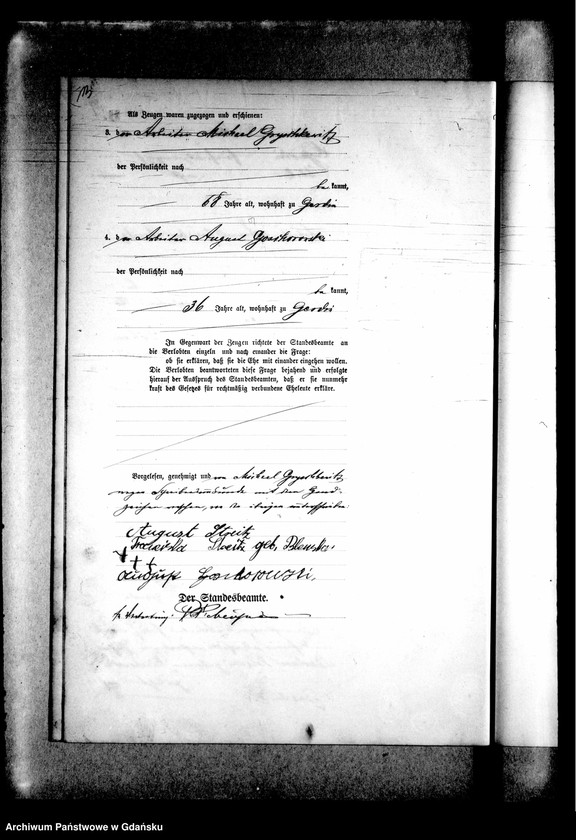 Als Zeugen waren zugezogen und erschienen:
3. der Arbeiter Michael
der Persönlichkeit nach
bekannt,
68 Jahre alt, wohnhaft zu
4. der Arbeiter August
der Persönlichkeit nach
bekannt,
36 Jahre alt, wohnhaft zu
In Gegenwart der Zeugen richtete der Standesbeamte an
die Verlobten einzeln und nach einander die Frage:
ob sie erklären, daß sie die Ehe mit einander eingehen wollen.
Die Verlobten beantworteten diese Frage bejahend und erfolgte
hierauf der Ausspruch des Standesbeamten, daß er sie nunmehr
kraft des Gesetzes für rechtmäßig verbundene Eheleute erkläre.
Vorgelesen, genehmigt und von Michael
wegen Schreibensunkunde mit dem Hand-
zeichen versehen, von den übrigen unterschrieben:
August
geb.
+++
August
Der Standesbeamte.
In Vertretung:
Archiwum Państwowe w Gdańsku